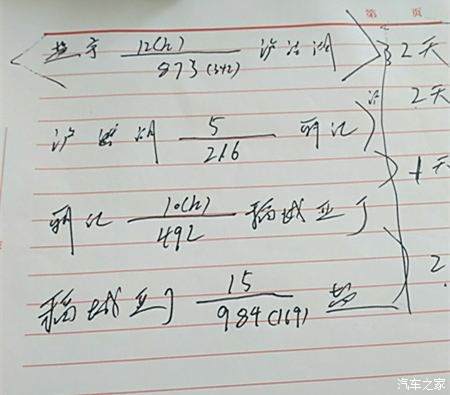 第 页
盐亭 12(h) 泸沽湖 2天
873(342)
泸 2天
泸沽湖 5 丽江
216
1天
丽江 10(h) 稻城亚丁
492
稻城亚丁 15 盐 2
984(169)
汽车之家